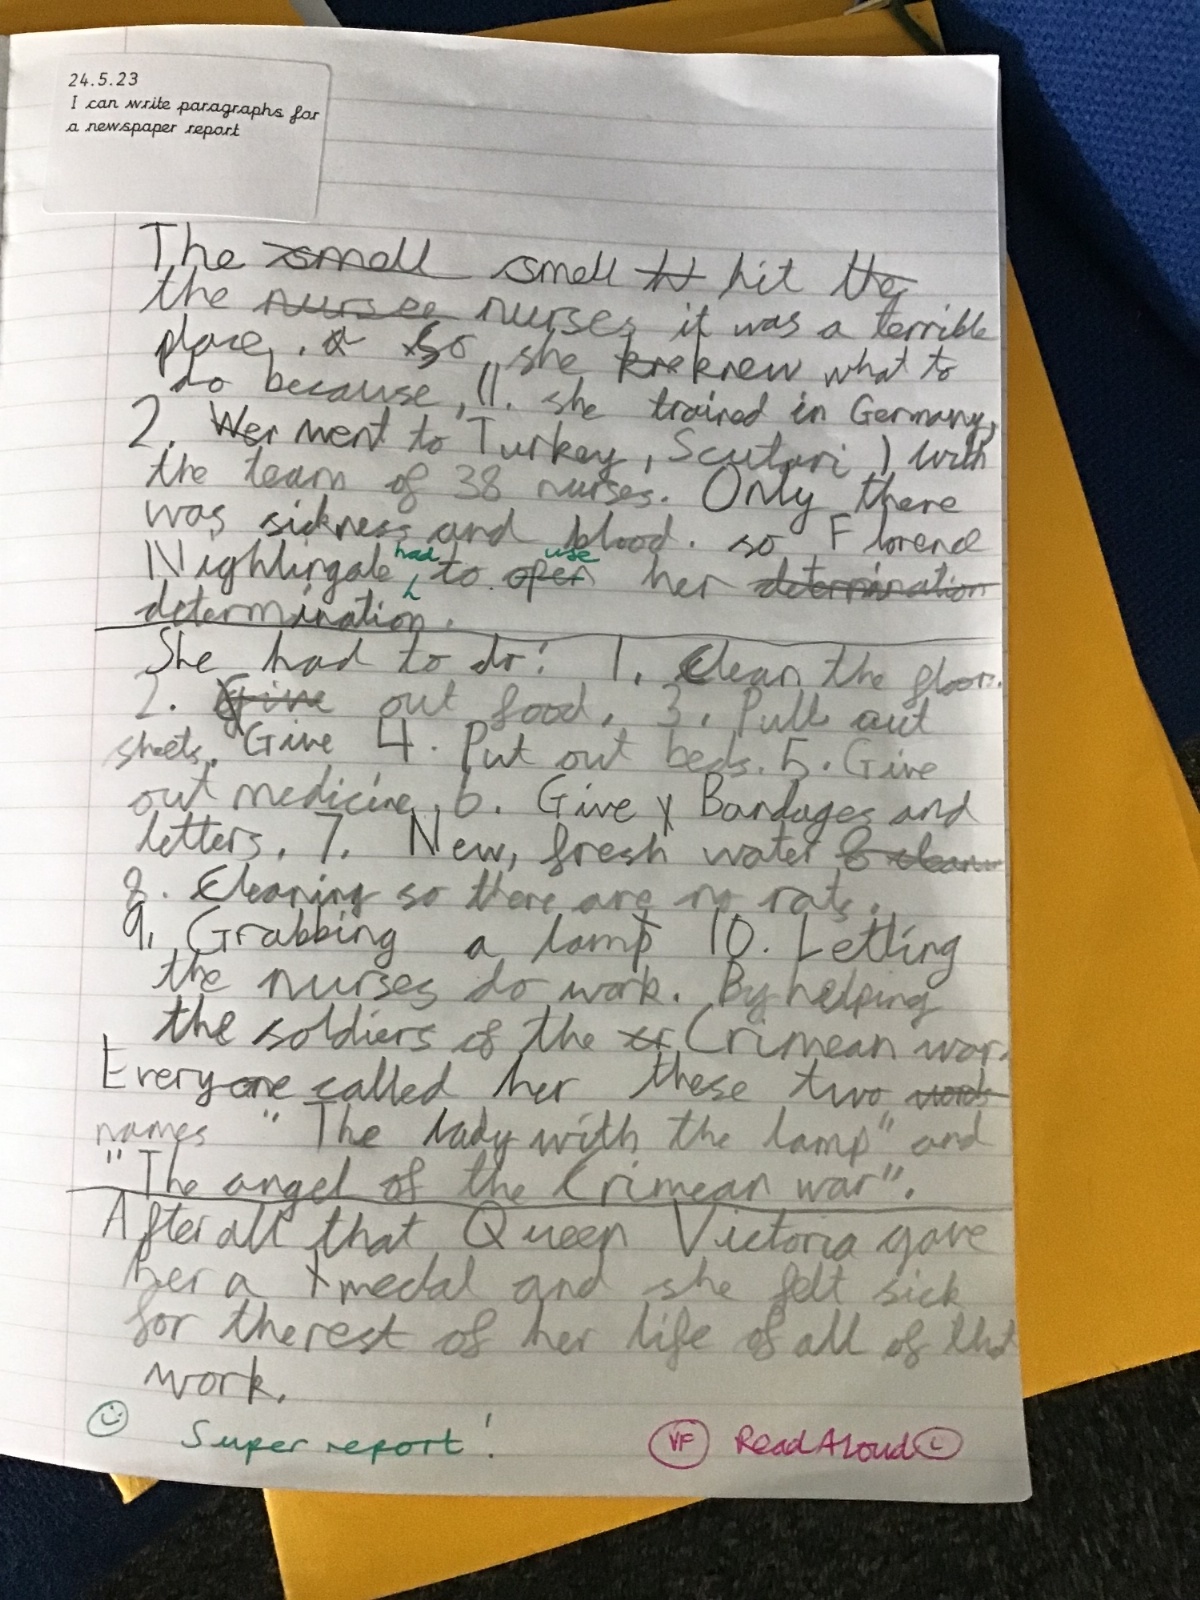 24.5.23
I can write paragraphs for
a newspaper report
The smell smell hit the
the nursee nurses it was a terrible
place. So she kre knew what to
do because, 1. she trained in Germany,
2. Wer went to Turkey, Scutari ) with
the team of 38 nurses. Only there
was sickness and blood. so Florence
had use
Nightingale to open her determination
determination.
She had to do: 1. Clean the floor.
2. Give out food. 3. Pull out
sheets. Give 4. Put out beds. 5. Give
out medicine, 6. Give Bandages and
letters. 7. New, fresh water 8 clean
8. Cleaning so there are no rats.
9. Grabbing a lamp 10. Letting
the nurses do work. By helping
the soldiers of the cr Crimean war.
Everyone called her these two words
names "The lady with the lamp" and
"The angel of the Crimean war".
After all that Queen Victoria gave
her a medal and she felt sick
for therest of her life of all of that
work.
Super report!
VF Read Aloud